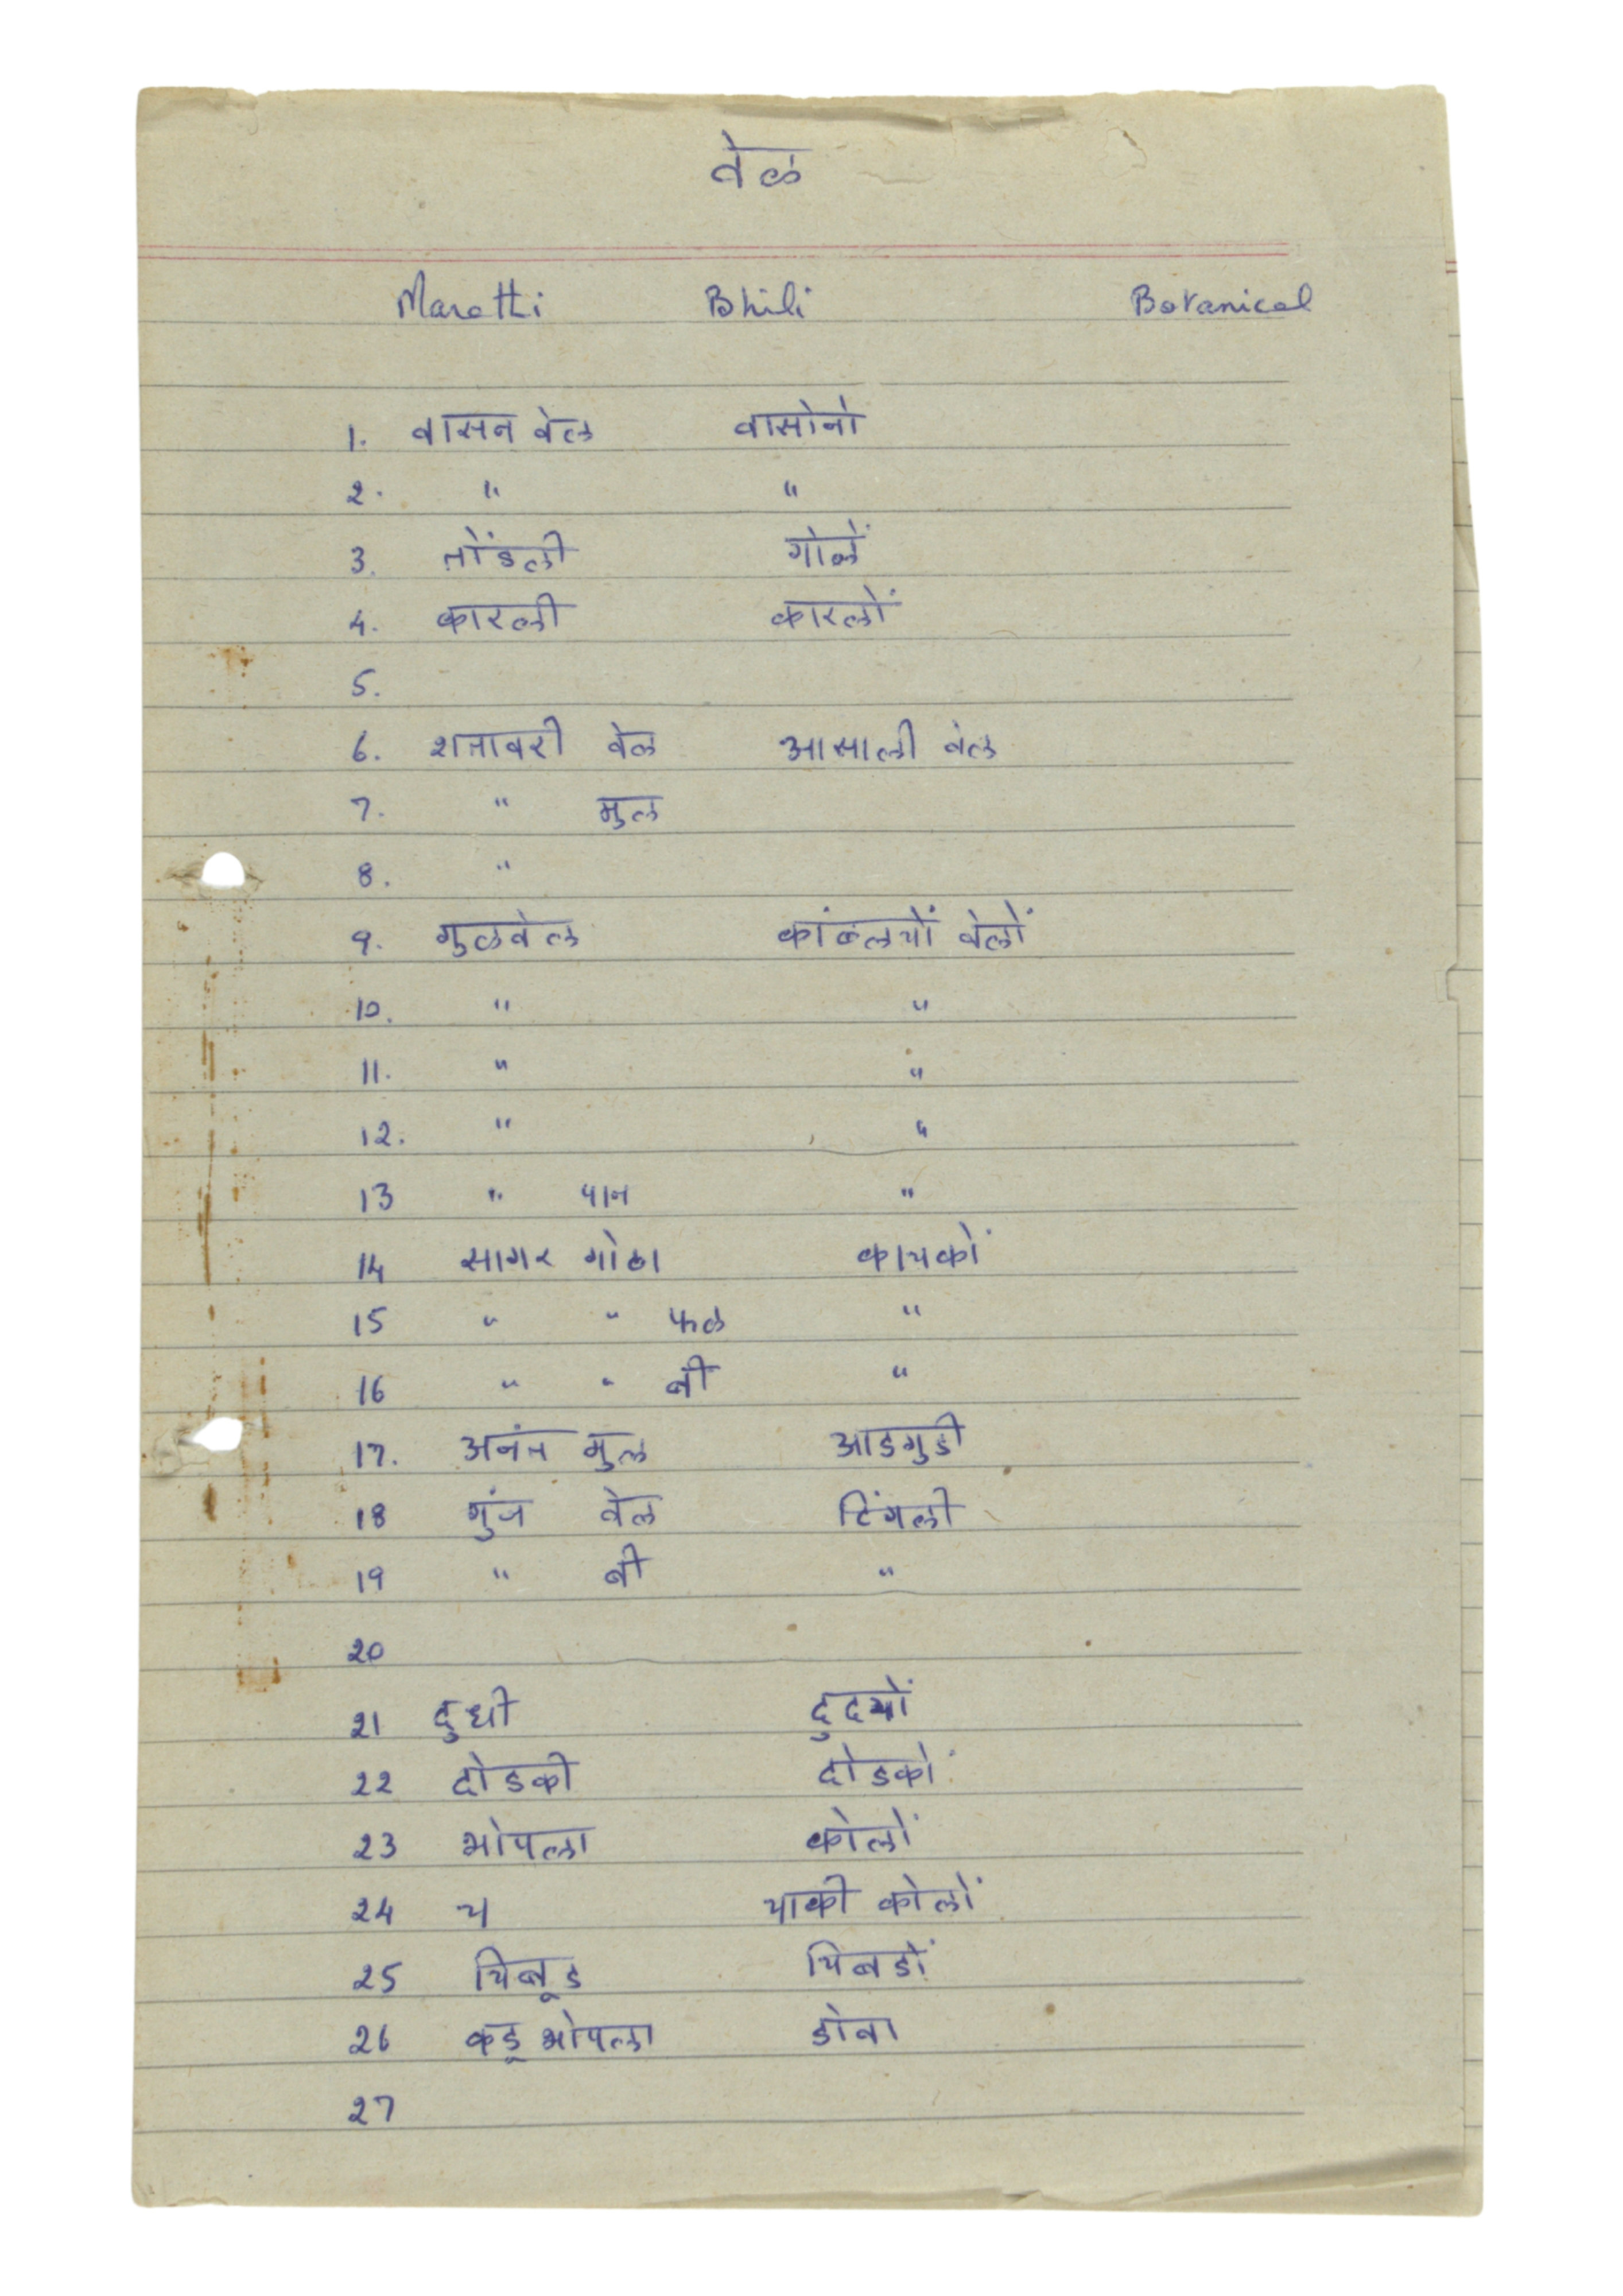 वेल
Marathi Bhili Botanical
1. वासन वेल वासोनो
2. " "
3. तोंडली गोलें
4. कारली कारलों
5.
6. शतावरी वेल आसाली वेल
7. " मुल
8. "
9. गुळवेल कांबल्यों वेलों
10. " "
11. " "
12. " "
13 " पान "
14 सागर गोठा काचकों
15 " " फळ "
16 " " बी "
17. अनंत मुल आडगुडी
18 गुंज वेल टिंगली
19 " बी "
20
21 दुधी दुदयों
22 दोडकी दोडकों
23 भोपला कोलों
24 च चाकी कोलों
25 चिबूड चिबडों
26 कडू भोपला डोबा
27